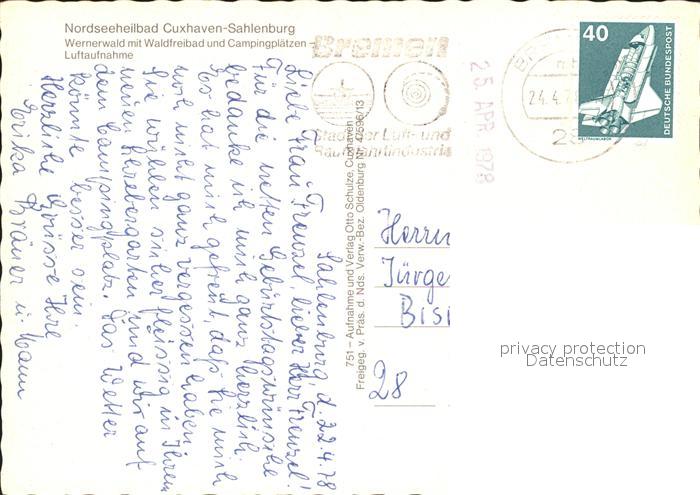 Nordseeheilbad Cuxhaven-Sahlenburg
Wernerwald mit Waldfreibad und Campingplätzen –
Luftaufnahme
Bremen
Stadt der Luft- und
Raumfahrtindustrie
25. APR. 1978
24.4.7
28
40
DEUTSCHE BUNDESPOST
WELTRAUMLABOR
Sahlenburg, d. 22.4.78
Liebe Frau Frenzel, lieber Herr Frenzel!
Für die netten Geburtstagswünsche
bedanke ich mich ganz herzlich.
Es hat mich gefreut, daß Sie mich
noch nicht ganz vergessen haben.
Sie wühlen sicher fleissig in Ihrem
neuen Schrebergarten und wir auf
dem Campingplatz. Das Wetter
könnte besser sein.
Herzliche Grüsse Ihre
Erika u. Mann
751 – Aufnahme und Verlag Otto Schulze, Cuxhaven
Freigeg. v. Präs. d. Nds. Verw.-Bez. Oldenburg Nr. 42596/13
Herrn
Jürge
Bisi
28
privacy protection
Datenschutz